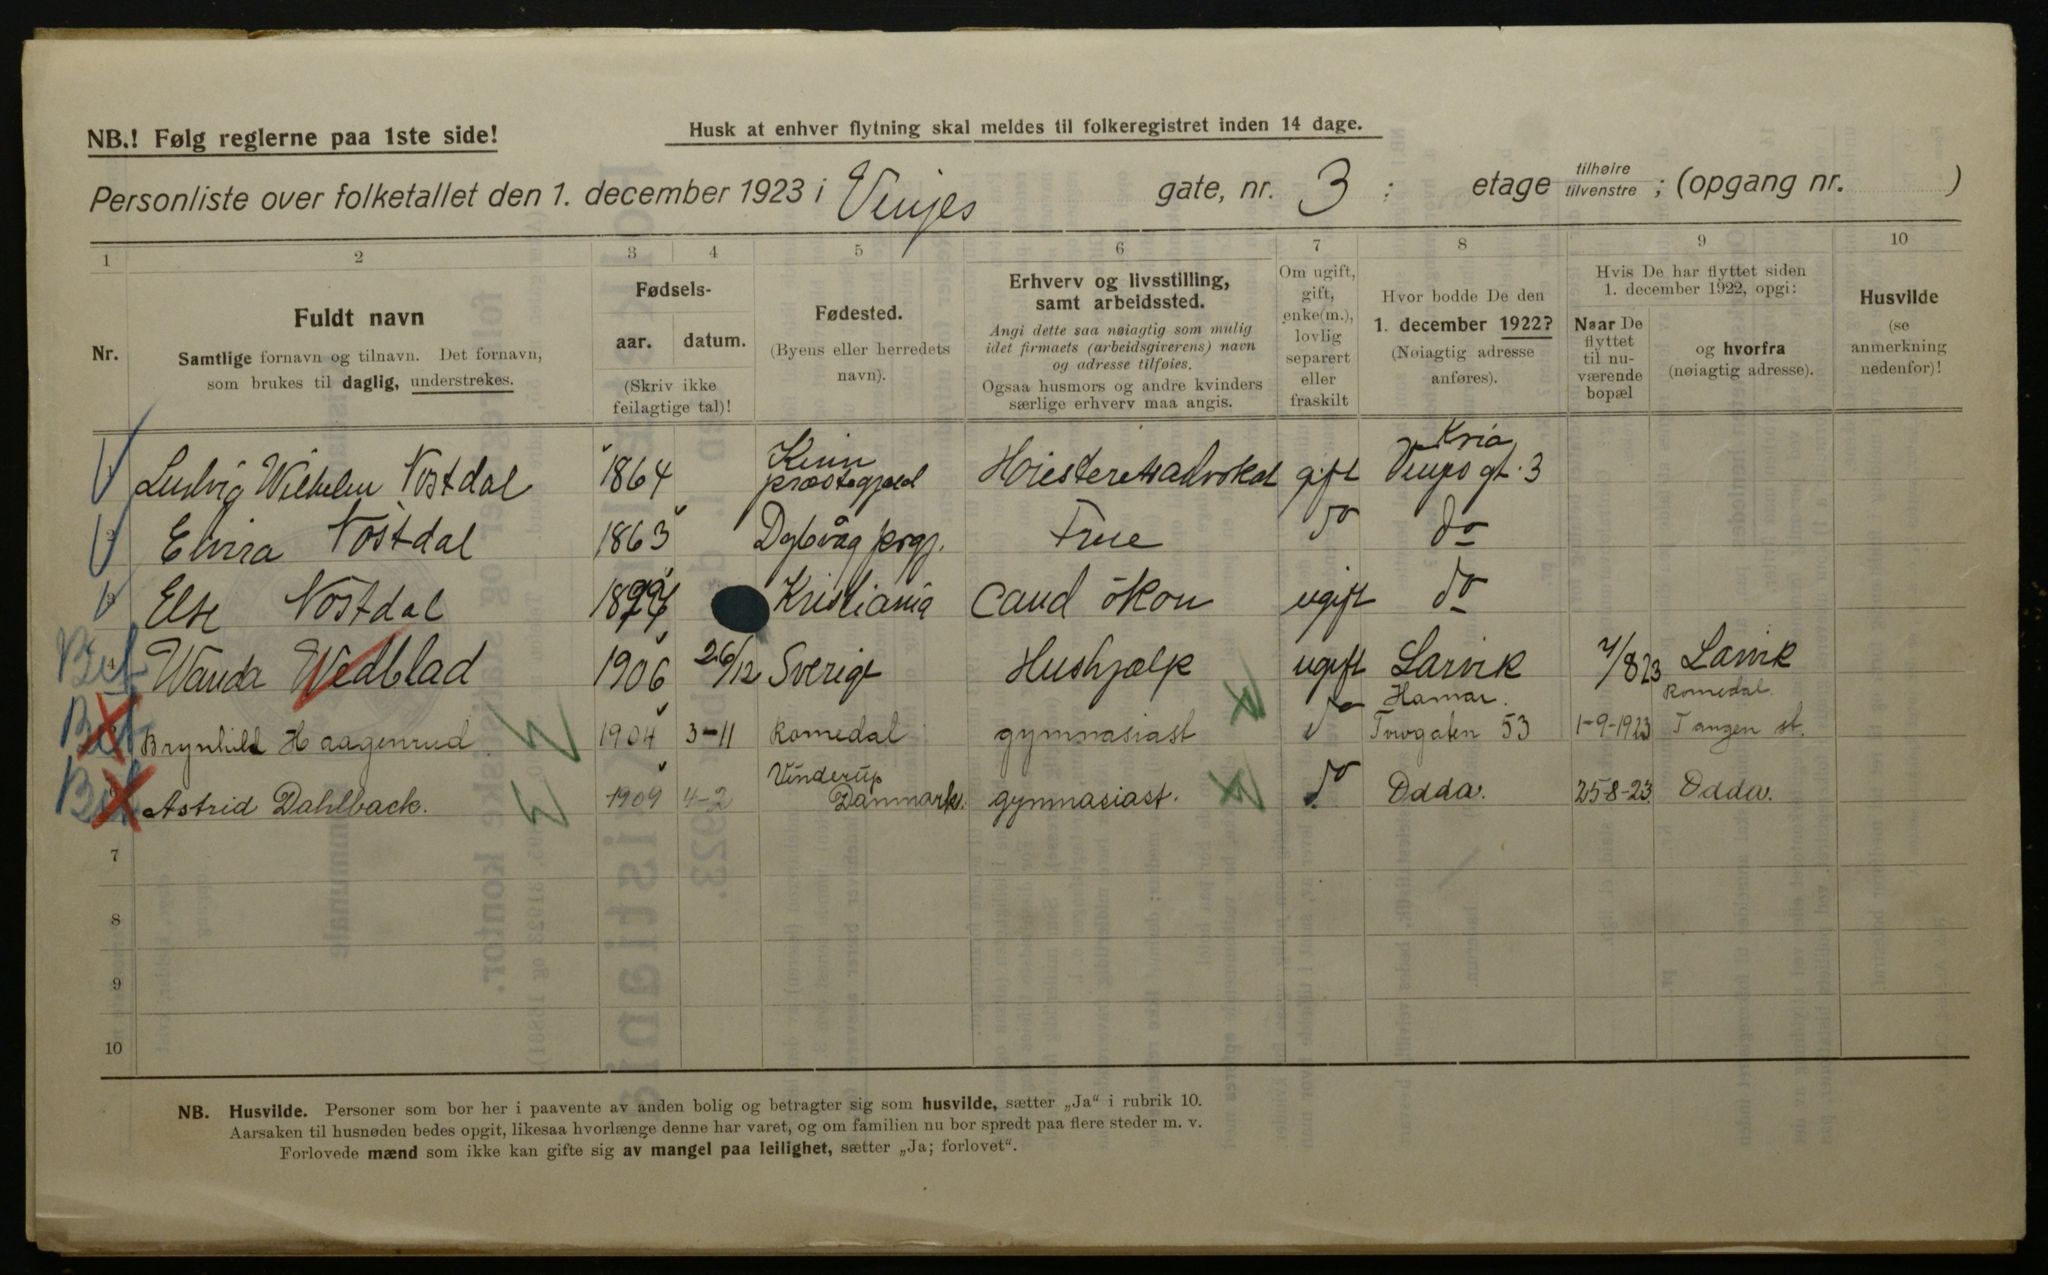 NB.! Følg reglerne paa 1ste side!
Husk at enhver flytning skal meldes til folkeregistret inden 14 dage.
Personliste over folketallet den 1. december 1923 i Vinjes gate, nr. 3 : etage tilhøire tilvenstre ; (opgang nr. )
1 2 3 4 5 6 7 8 9 10
Nr.
Fuldt navn
Samtlige fornavn og tilnavn. Det fornavn,
som brukes til daglig, understrekes.
Fødsels-
aar. datum.
(Skriv ikke
feilagtige tal)!
Fødested.
(Byens eller herredets
navn).
Erhverv og livsstilling,
samt arbeidssted.
Angi dette saa nøiagtig som mulig
idet firmaets (arbeidsgiverens) navn
og adresse tilføies.
Ogsaa husmors og andre kvinders
særlige erhverv maa angis.
Om ugift,
gift,
enke(m.),
lovlig
separert
eller
fraskilt
Hvor bodde De den
1. december 1922?
(Nøiagtig adresse
anføres).
Hvis De har flyttet siden
1. december 1922, opgi:
Naar De
flyttet
til nu-
værende
bopæl
og hvorfra
(nøiagtig adresse).
Husvilde
(se
anmerkning
nedenfor)!
Ludvig Wilhelm Nostdal 1864 Kinn præstegjeld Høiesteretsadvokat gift Kria Vinjes gt. 3
2 Elvira Nostdal 1863 Dybvåg prgj. Frue do do
3 Else Nostdal Kristiania Cand økon ugift do
4 Wanda Wedblad 1906 26/12 Sverige Hushjælp ugift Larvik 7/8 23 Larvik
Brynhild Haagenrud 1904 3-11 Romedal gymnasiast do Hamar. Torvgaten 53 1-9-1923 Romedal Tangen st.
Astrid Dahlback. 1909 4-2 Vinderup Danmark. gymnasiast. do Odda. 25-8-23 Odda.
7
8
9
10
NB. Husvilde. Personer som bor her i paavente av anden bolig og betragter sig som husvilde, sætter „Ja“ i rubrik 10.
Aarsaken til husnøden bedes opgit, likesaa hvorlænge denne har varet, og om familien nu bor spredt paa flere steder m. v.
Forlovede mænd som ikke kan gifte sig av mangel paa leilighet, sætter „Ja; forlovet“.